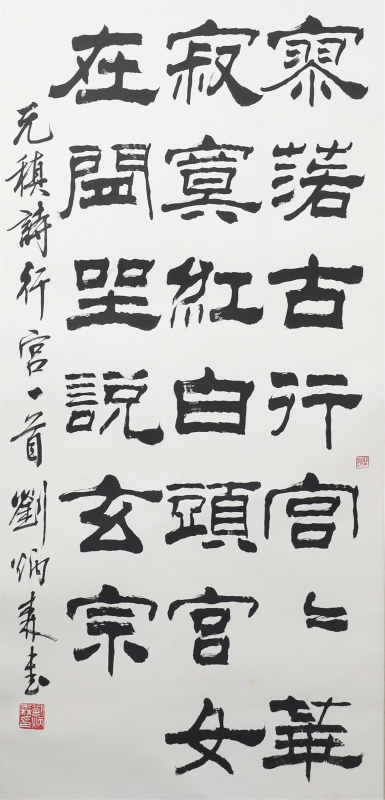 寥落古行宫〻華
寂寞紅白頭宫女
在閒坐説玄宗
元稹詩行宫一首劉炳森書